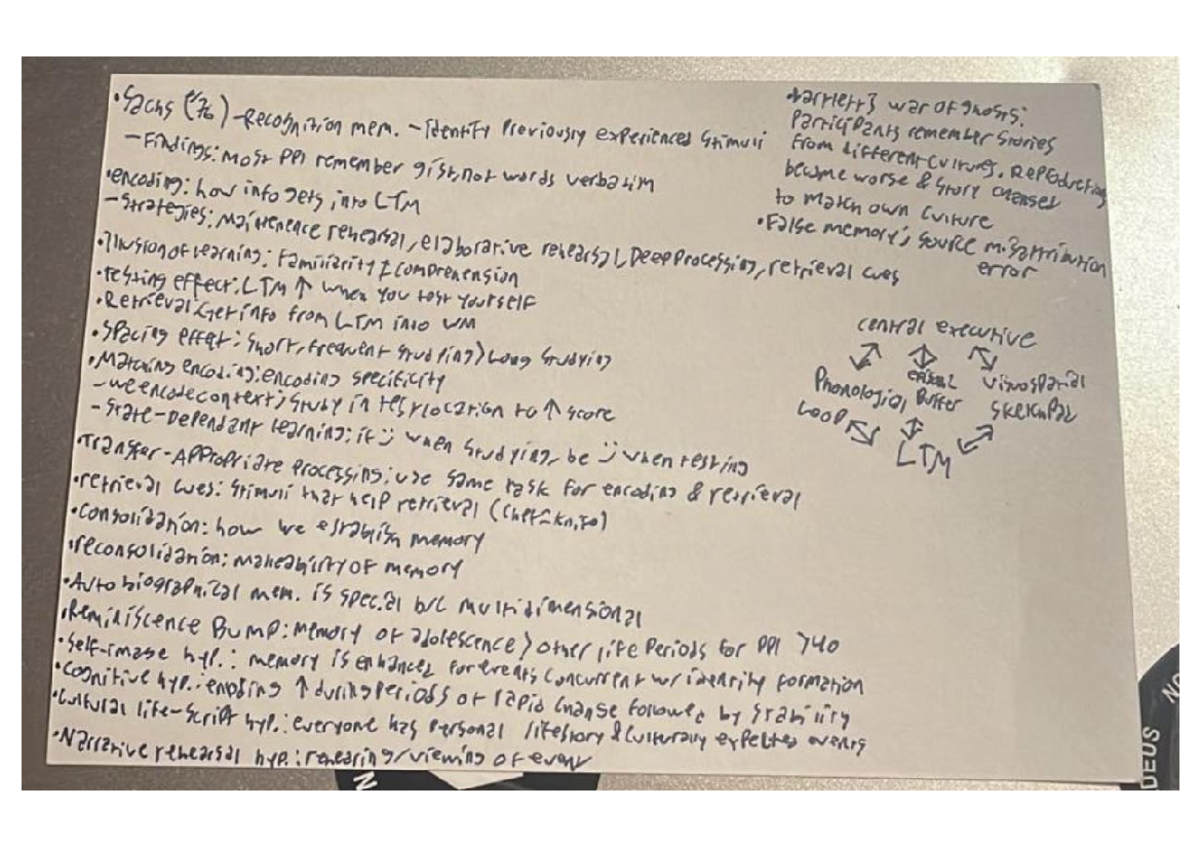 •Sachs
-Recognition mem. - identify previously experienced stimuli
-Findings: most ppl remember gist, not words verbatim
•encoding: how info gets into LTM
-Strategies: Maintenence rehearsal, elaborative rehearsal, Deep Processing, retrieval cues
•Illusion of learning: Familiarity ≠ comprehension
•testing effect: LTM ↑ when you test yourself
•Retrieval: Get info from LTM into WM
•Spacing effect: Short, frequent studying > Long studying
•Matching encoding: encoding specificity
-we encode context; study in test location to ↑ score
-State-Dependant learning: if :) when studying, be :) when testing
•Transfer-Appropriate processing: use same task for encoding & retrieval
•retrieval cues: stimuli that help retrieval
•consolidation: how we establish memory
•reconsolidation: maleability of memory
•Autobiographical mem. is special b/c multidimensional
•Reminiscence Bump: Memory of adolescence > other life periods for ppl >40
•Self-image hyp.: memory is enhanced for events concurrent w/ identity formation
•Cognitive hyp.: encoding ↑ during periods of rapid change followed by stability
•Cultural life-script hyp.: everyone has personal lifestory & culturally expected events
•Narrative rehearsal hyp.: rehearing/viewing of event
war of ghosts:
Participants remember stories
from different cultures. Reproduction
became worse & story changed
to match own culture
•False memory; source misattribution
error
central executive
Phonological
Loop
Buffer
visuospatial
sketchpad
LTM
DEUS
N